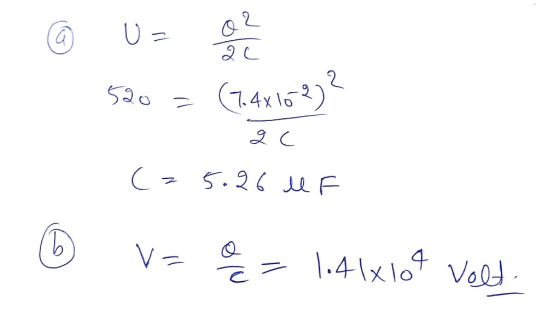 (a) U = Q²/2C
520 = (7.4x10⁻²)²/2C
C = 5.26 μF
(b) V = Q/C = 1.41x10⁴ Volt.